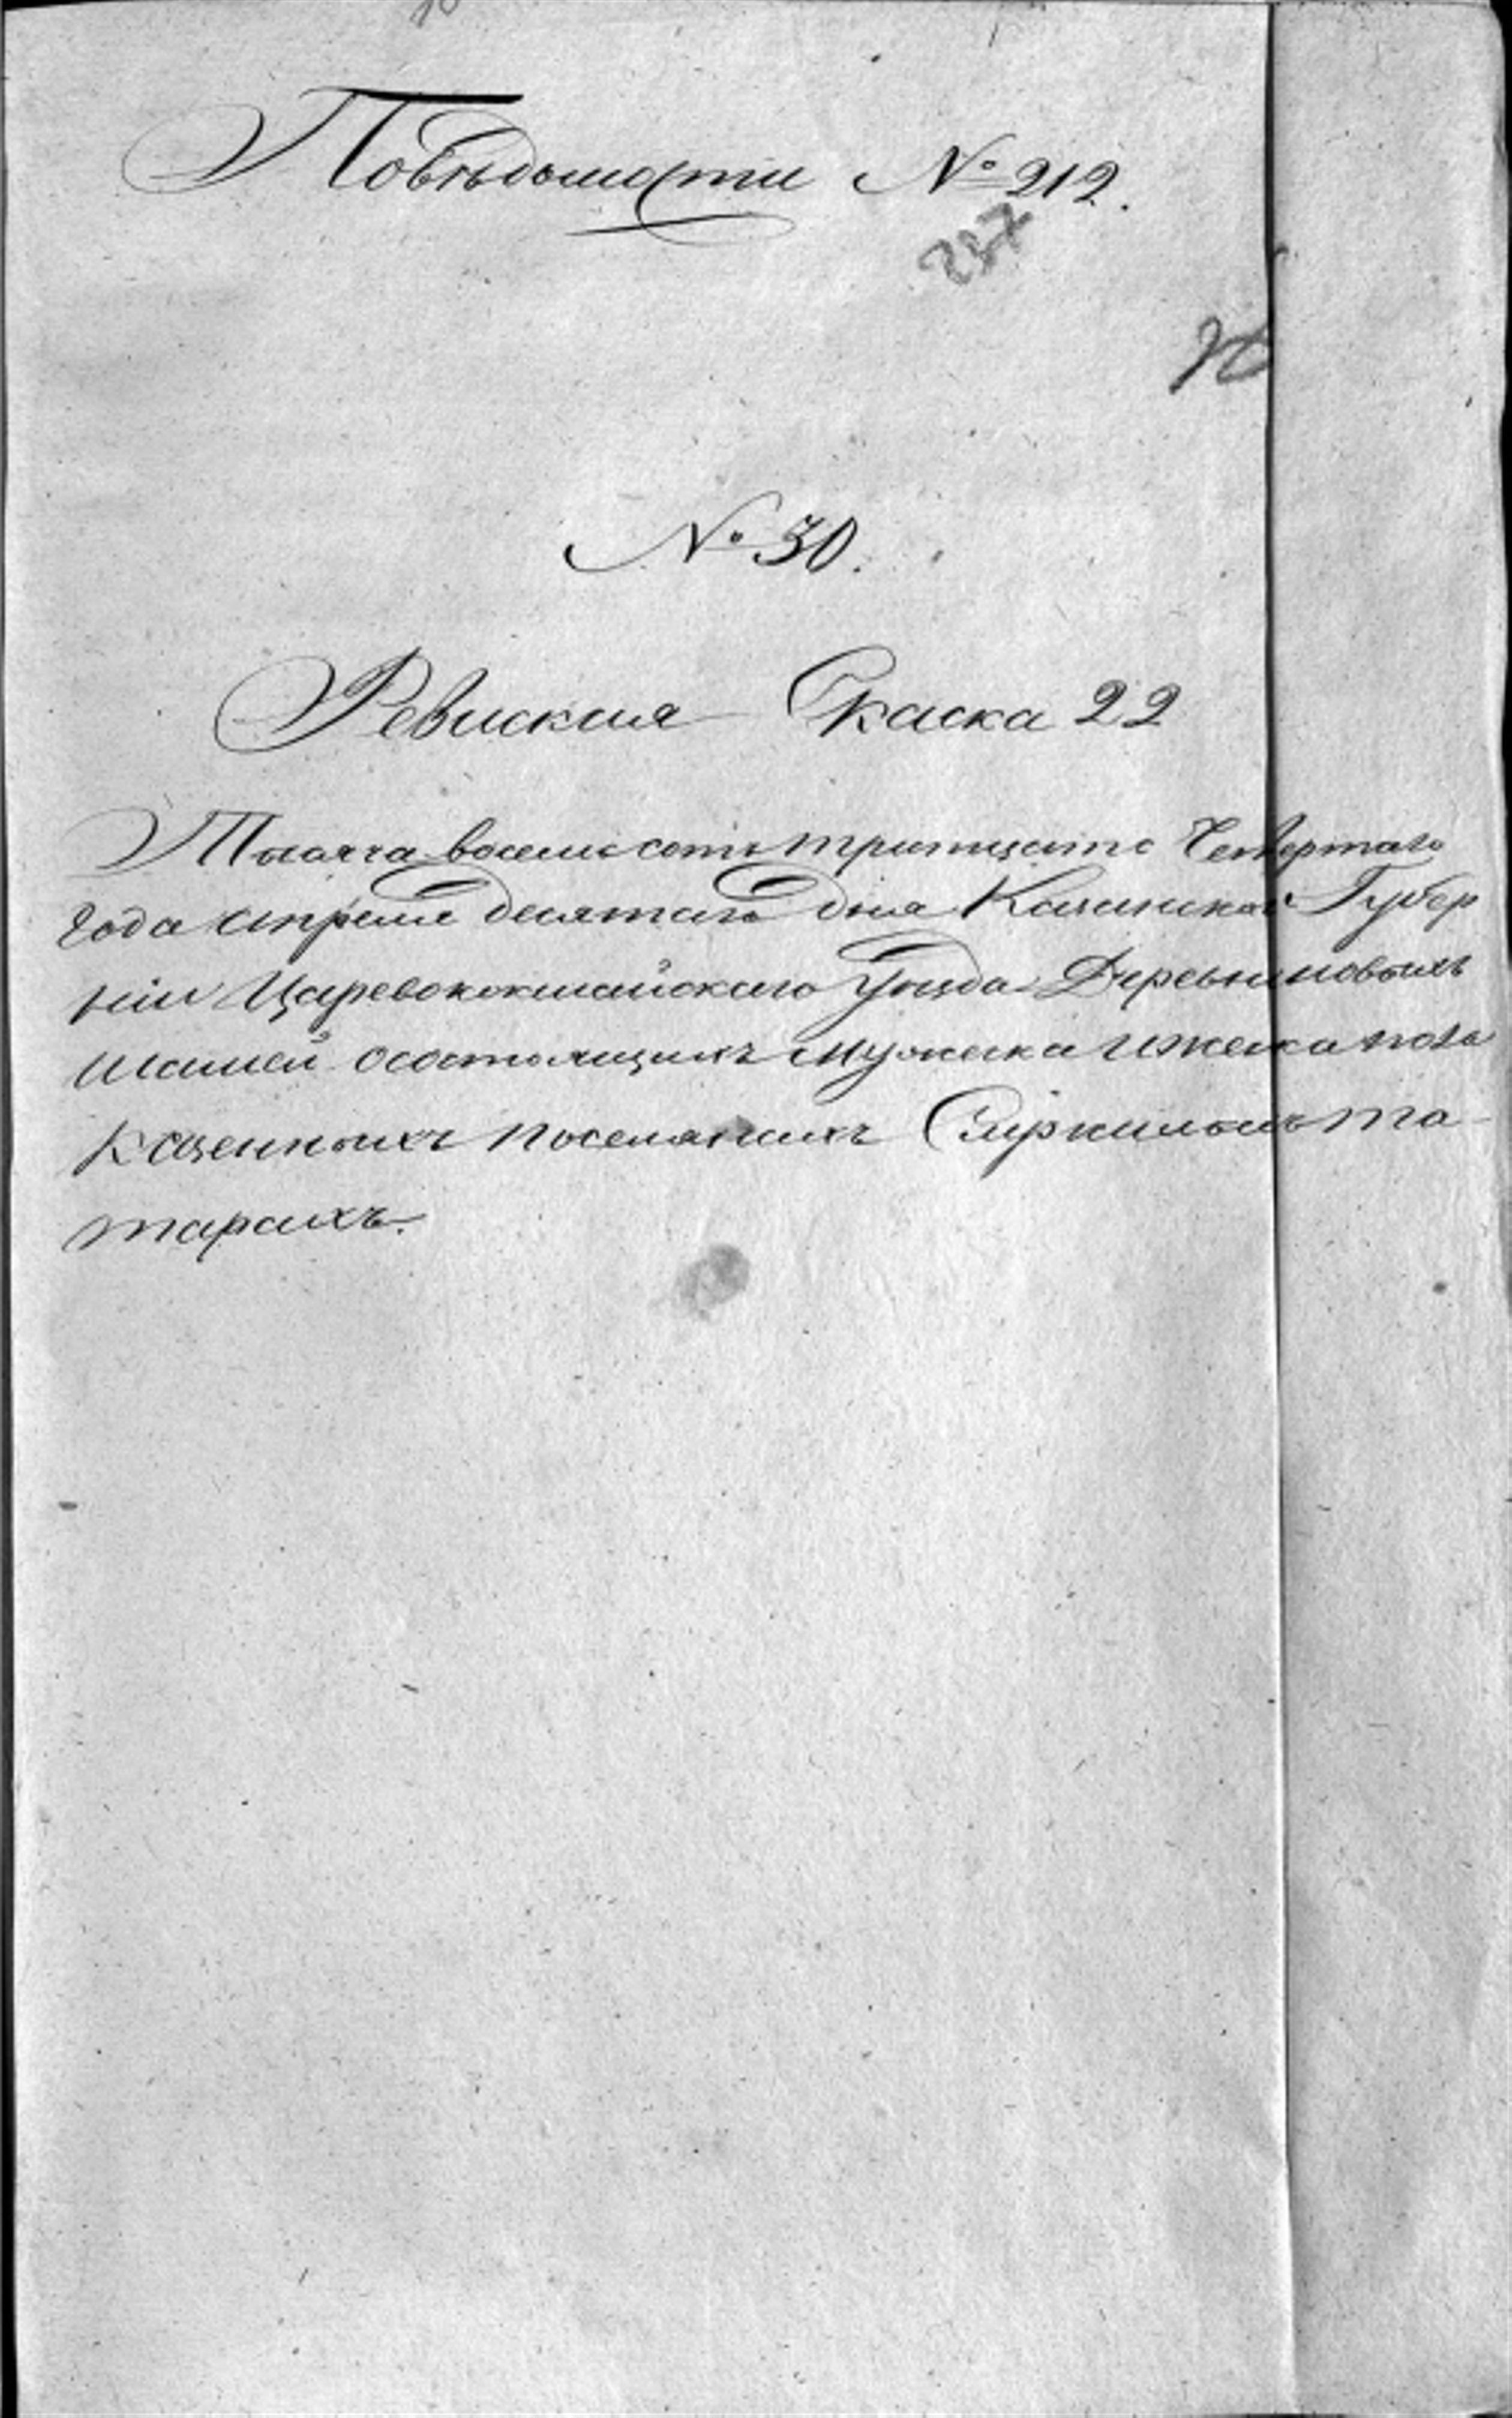 Поведомости № 212.
237
№ 30.
Ревиския Скаска 22
Тысяча восемь сотъ тритцать Четвертаго
года апреля десятаго дня Казанской Губер
нiи Царевококшайскаго уезда Деревни новыхъ
Шашей осостоящихъ мужеска ижеска пола
Казенныхъ поселянехъ Служилыхъ та-
тарахъ.